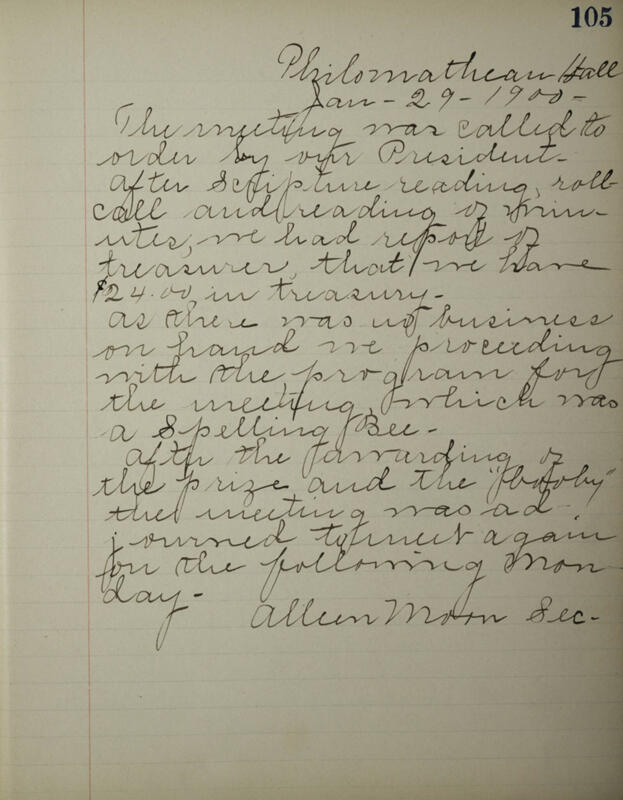 105
Philomathean Hall
Jan - 29 - 1900 -
The meeting was called to
order by our President -
After Scripture reading, roll
call and reading of min-
utes, we had report of
treasurer, that we have
$24.00 in treasury -
As there was no business
on hand we proceeding
with the program for
the meeting, which was
a Spelling Bee -
After the awarding of
the prize and the "booby"
the meeting was ad-
journed to meet again
on the following Mon
day -
Alleen Moon Sec -